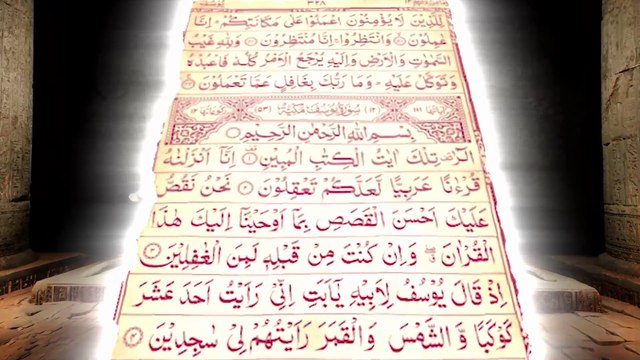 ٣٢٨
لِلَّذِينَ لَا يُؤْمِنُونَ اعْمَلُوا عَلَىٰ مَكَانَتِكُمْ إِنَّا
عٰمِلُونَ وَانْتَظِرُوا إِنَّا مُنْتَظِرُونَ وَلِلَّهِ غَيْبُ
السَّمٰوٰتِ وَالْأَرْضِ وَإِلَيْهِ يُرْجَعُ الْأَمْرُ كُلُّهُ فَاعْبُدْهُ
وَتَوَكَّلْ عَلَيْهِ وَمَا رَبُّكَ بِغَافِلٍ عَمَّا تَعْمَلُونَ
(١٢) سُورَةُ يُوسُفَ مَكِّيَّةٌ (٥٣)
بِسْمِ اللَّهِ الرَّحْمٰنِ الرَّحِيمِ
الٓرٰ تِلْكَ اٰيٰتُ الْكِتٰبِ الْمُبِينِ إِنَّا أَنْزَلْنٰهُ
قُرْءٰنًا عَرَبِيًّا لَعَلَّكُمْ تَعْقِلُونَ نَحْنُ نَقُصُّ
عَلَيْكَ أَحْسَنَ الْقَصَصِ بِمَا أَوْحَيْنَا إِلَيْكَ هٰذَا
الْقُرْاٰنَ وَإِنْ كُنْتَ مِنْ قَبْلِهِ لَمِنَ الْغٰفِلِينَ ٣
إِذْ قَالَ يُوسُفُ لِأَبِيهِ يٰٓأَبَتِ إِنِّي رَأَيْتُ أَحَدَ عَشَرَ
كَوْكَبًا وَّالشَّمْسَ وَالْقَمَرَ رَأَيْتُهُمْ لِي سٰجِدِينَ ٤